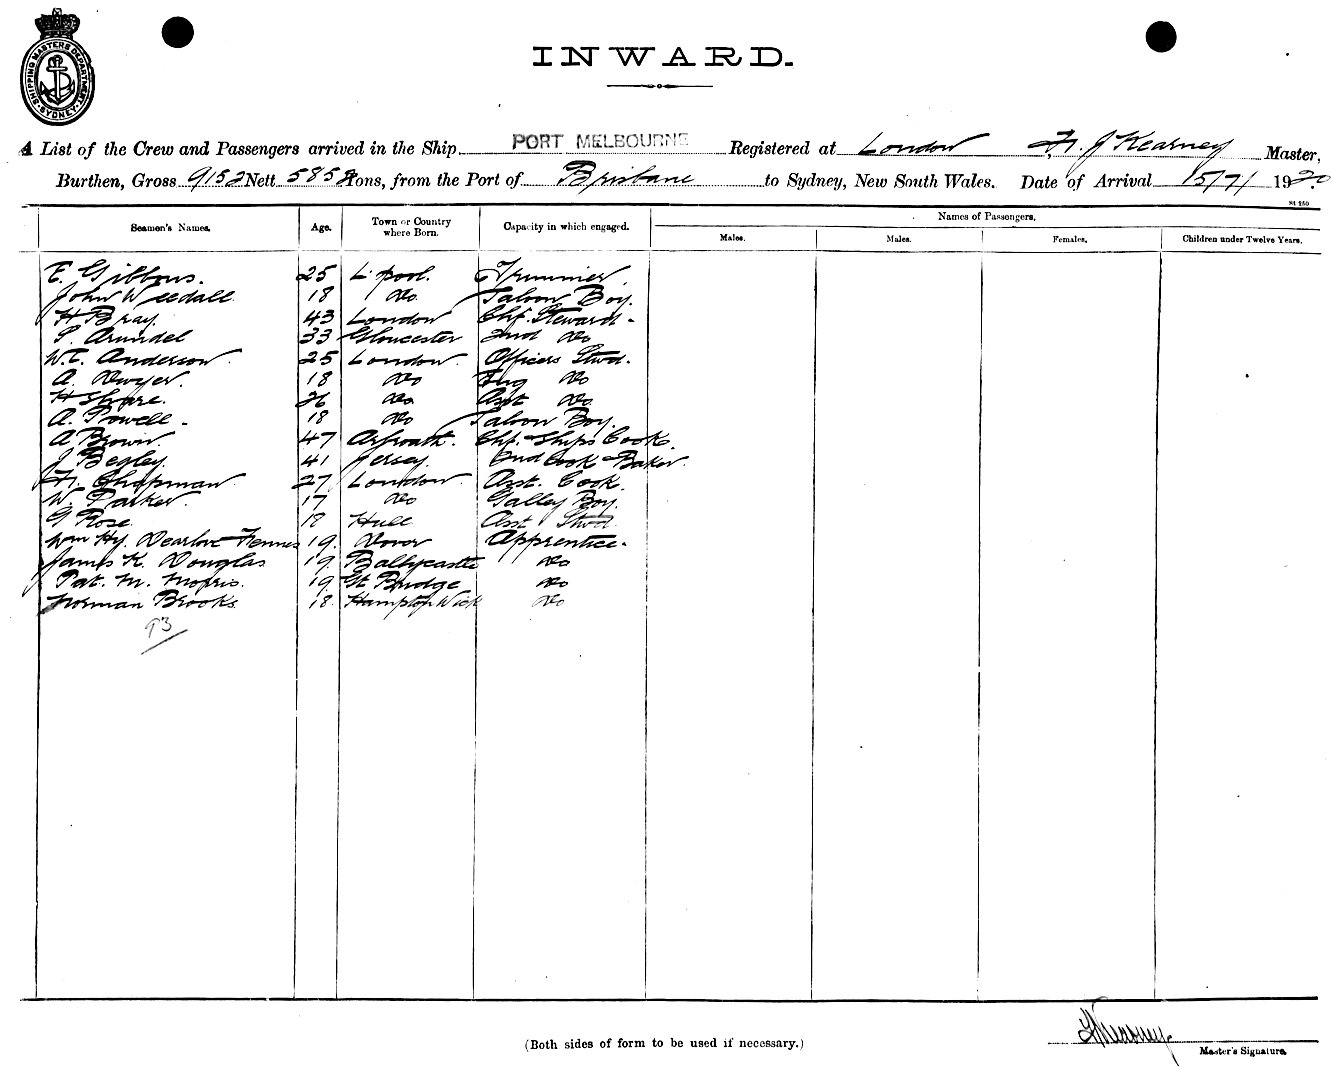 SHIPPING MASTERS DEPARTMENT
SYDNEY
INWARD.
A List of the Crew and Passengers arrived in the Ship PORT MELBOURNE Registered at London J Kearney Master,
Burthen, Gross 9152 Nett 5858 Tons, from the Port of Brisbane to Sydney, New South Wales. Date of Arrival 15/7/ 1920.
St 150
Seamen's Names. Age. Town or Country where Born. Capacity in which engaged. Names of Passengers.
Males. Males. Females. Children under Twelve Years.
E. Gibbons. 25 L'pool. Trimmer.
John Weedall 18 do Saloon Boy.
H Bray. 43 London Chf. Steward.
Arundel 33 Gloucester 2nd do
W.E. Anderson. 25 London. Officers Stwd.
A. Dwyer. 18 do Eng do
H Share. 26 do Asst do
A. Powell. 18 do Saloon Boy.
A Brown. 47 Arbroath. Chf. Ships Cook.
J Begley. 41 Jersey. 2nd Cook & Baker.
Chapman 27 London Asst. Cook.
W. Parker. 17 do Galley Boy.
G Rose. 18 Hull Asst Stwd.
Wm Hy. Dearlove Fennes 19. Dover Apprentice.
James K. Douglas 19. Ballycastle do
Pat. M. Morris. 19 Gt Bridge do
Norman Brooks. 18. Hampton Wick do
93
(Both sides of form to be used if necessary.)
Kearney
Master's Signature.